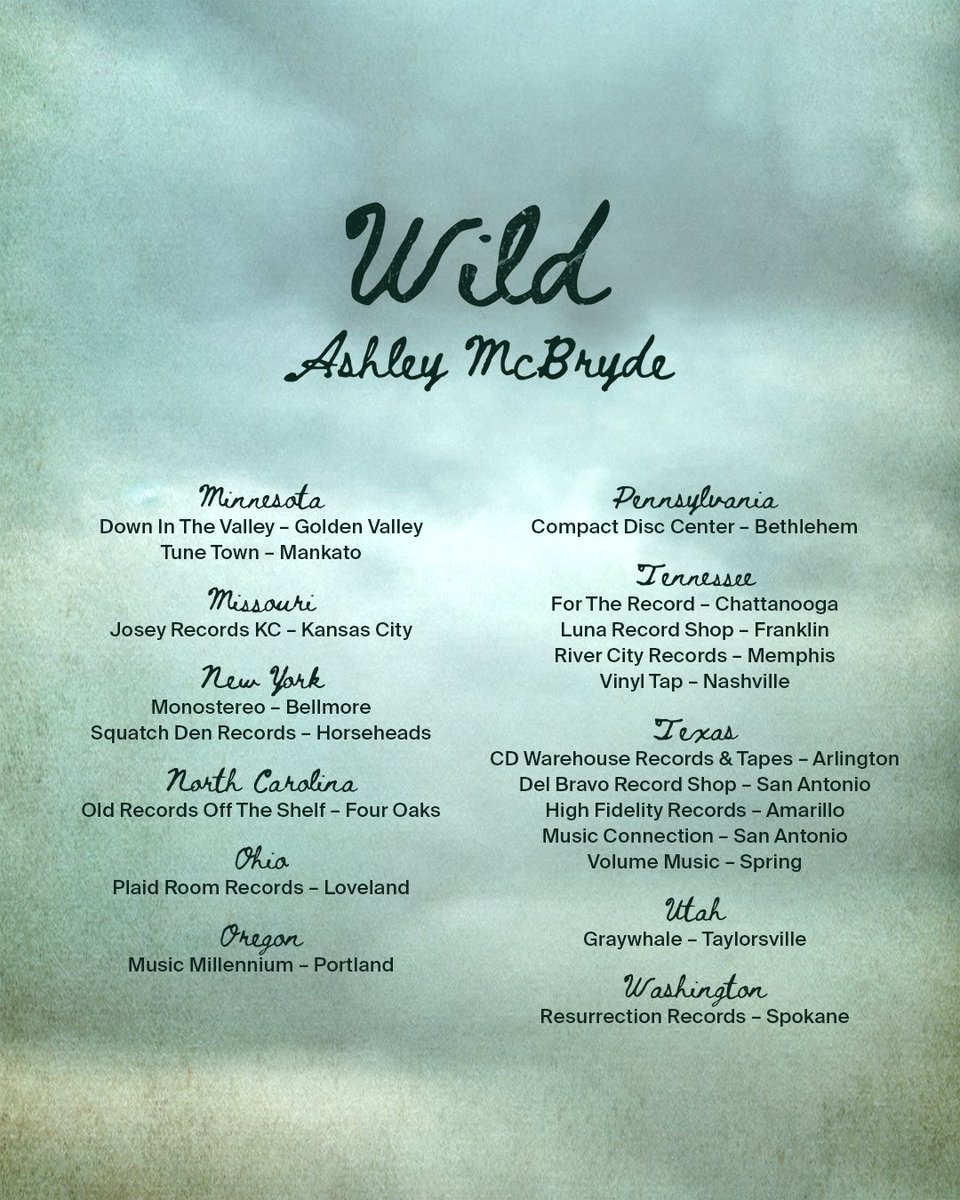 Wild
Ashley McBryde
Minnesota
Down In The Valley – Golden Valley
Tune Town – Mankato
Missouri
Josey Records KC – Kansas City
New York
Monostereo – Bellmore
Squatch Den Records – Horseheads
North Carolina
Old Records Off The Shelf – Four Oaks
Ohio
Plaid Room Records – Loveland
Oregon
Music Millennium – Portland
Pennsylvania
Compact Disc Center – Bethlehem
Tennessee
For The Record – Chattanooga
Luna Record Shop – Franklin
River City Records – Memphis
Vinyl Tap – Nashville
Texas
CD Warehouse Records & Tapes – Arlington
Del Bravo Record Shop – San Antonio
High Fidelity Records – Amarillo
Music Connection – San Antonio
Volume Music – Spring
Utah
Graywhale – Taylorsville
Washington
Resurrection Records – Spokane